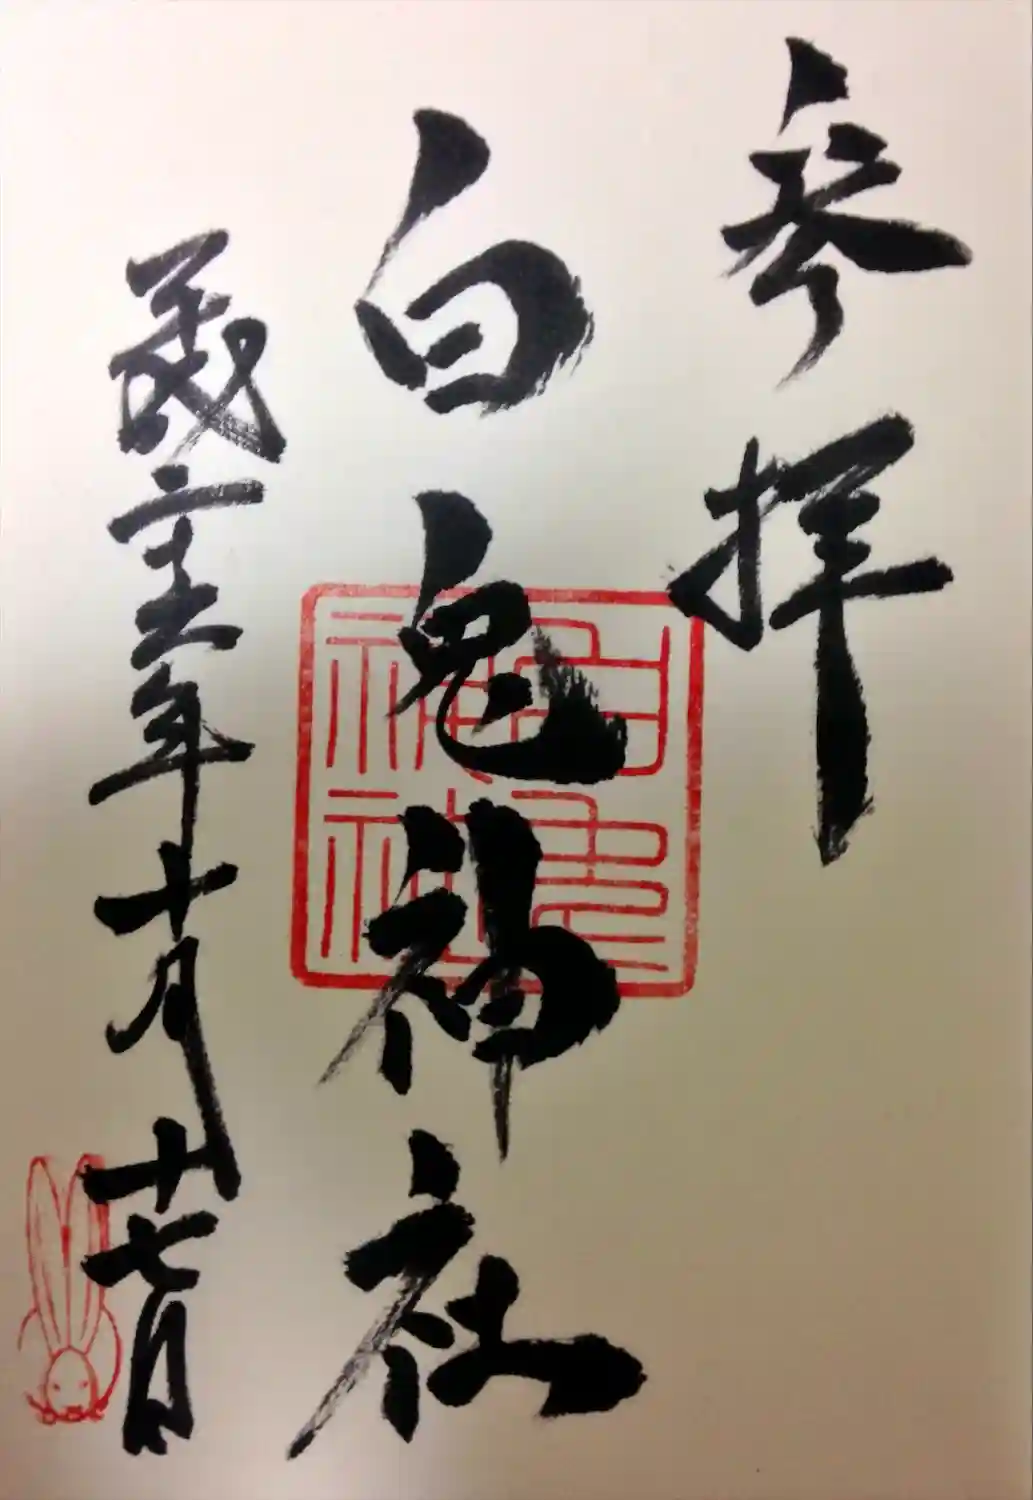 参拝
白兎神社
平成二十五年十月十七日
白兎
神社